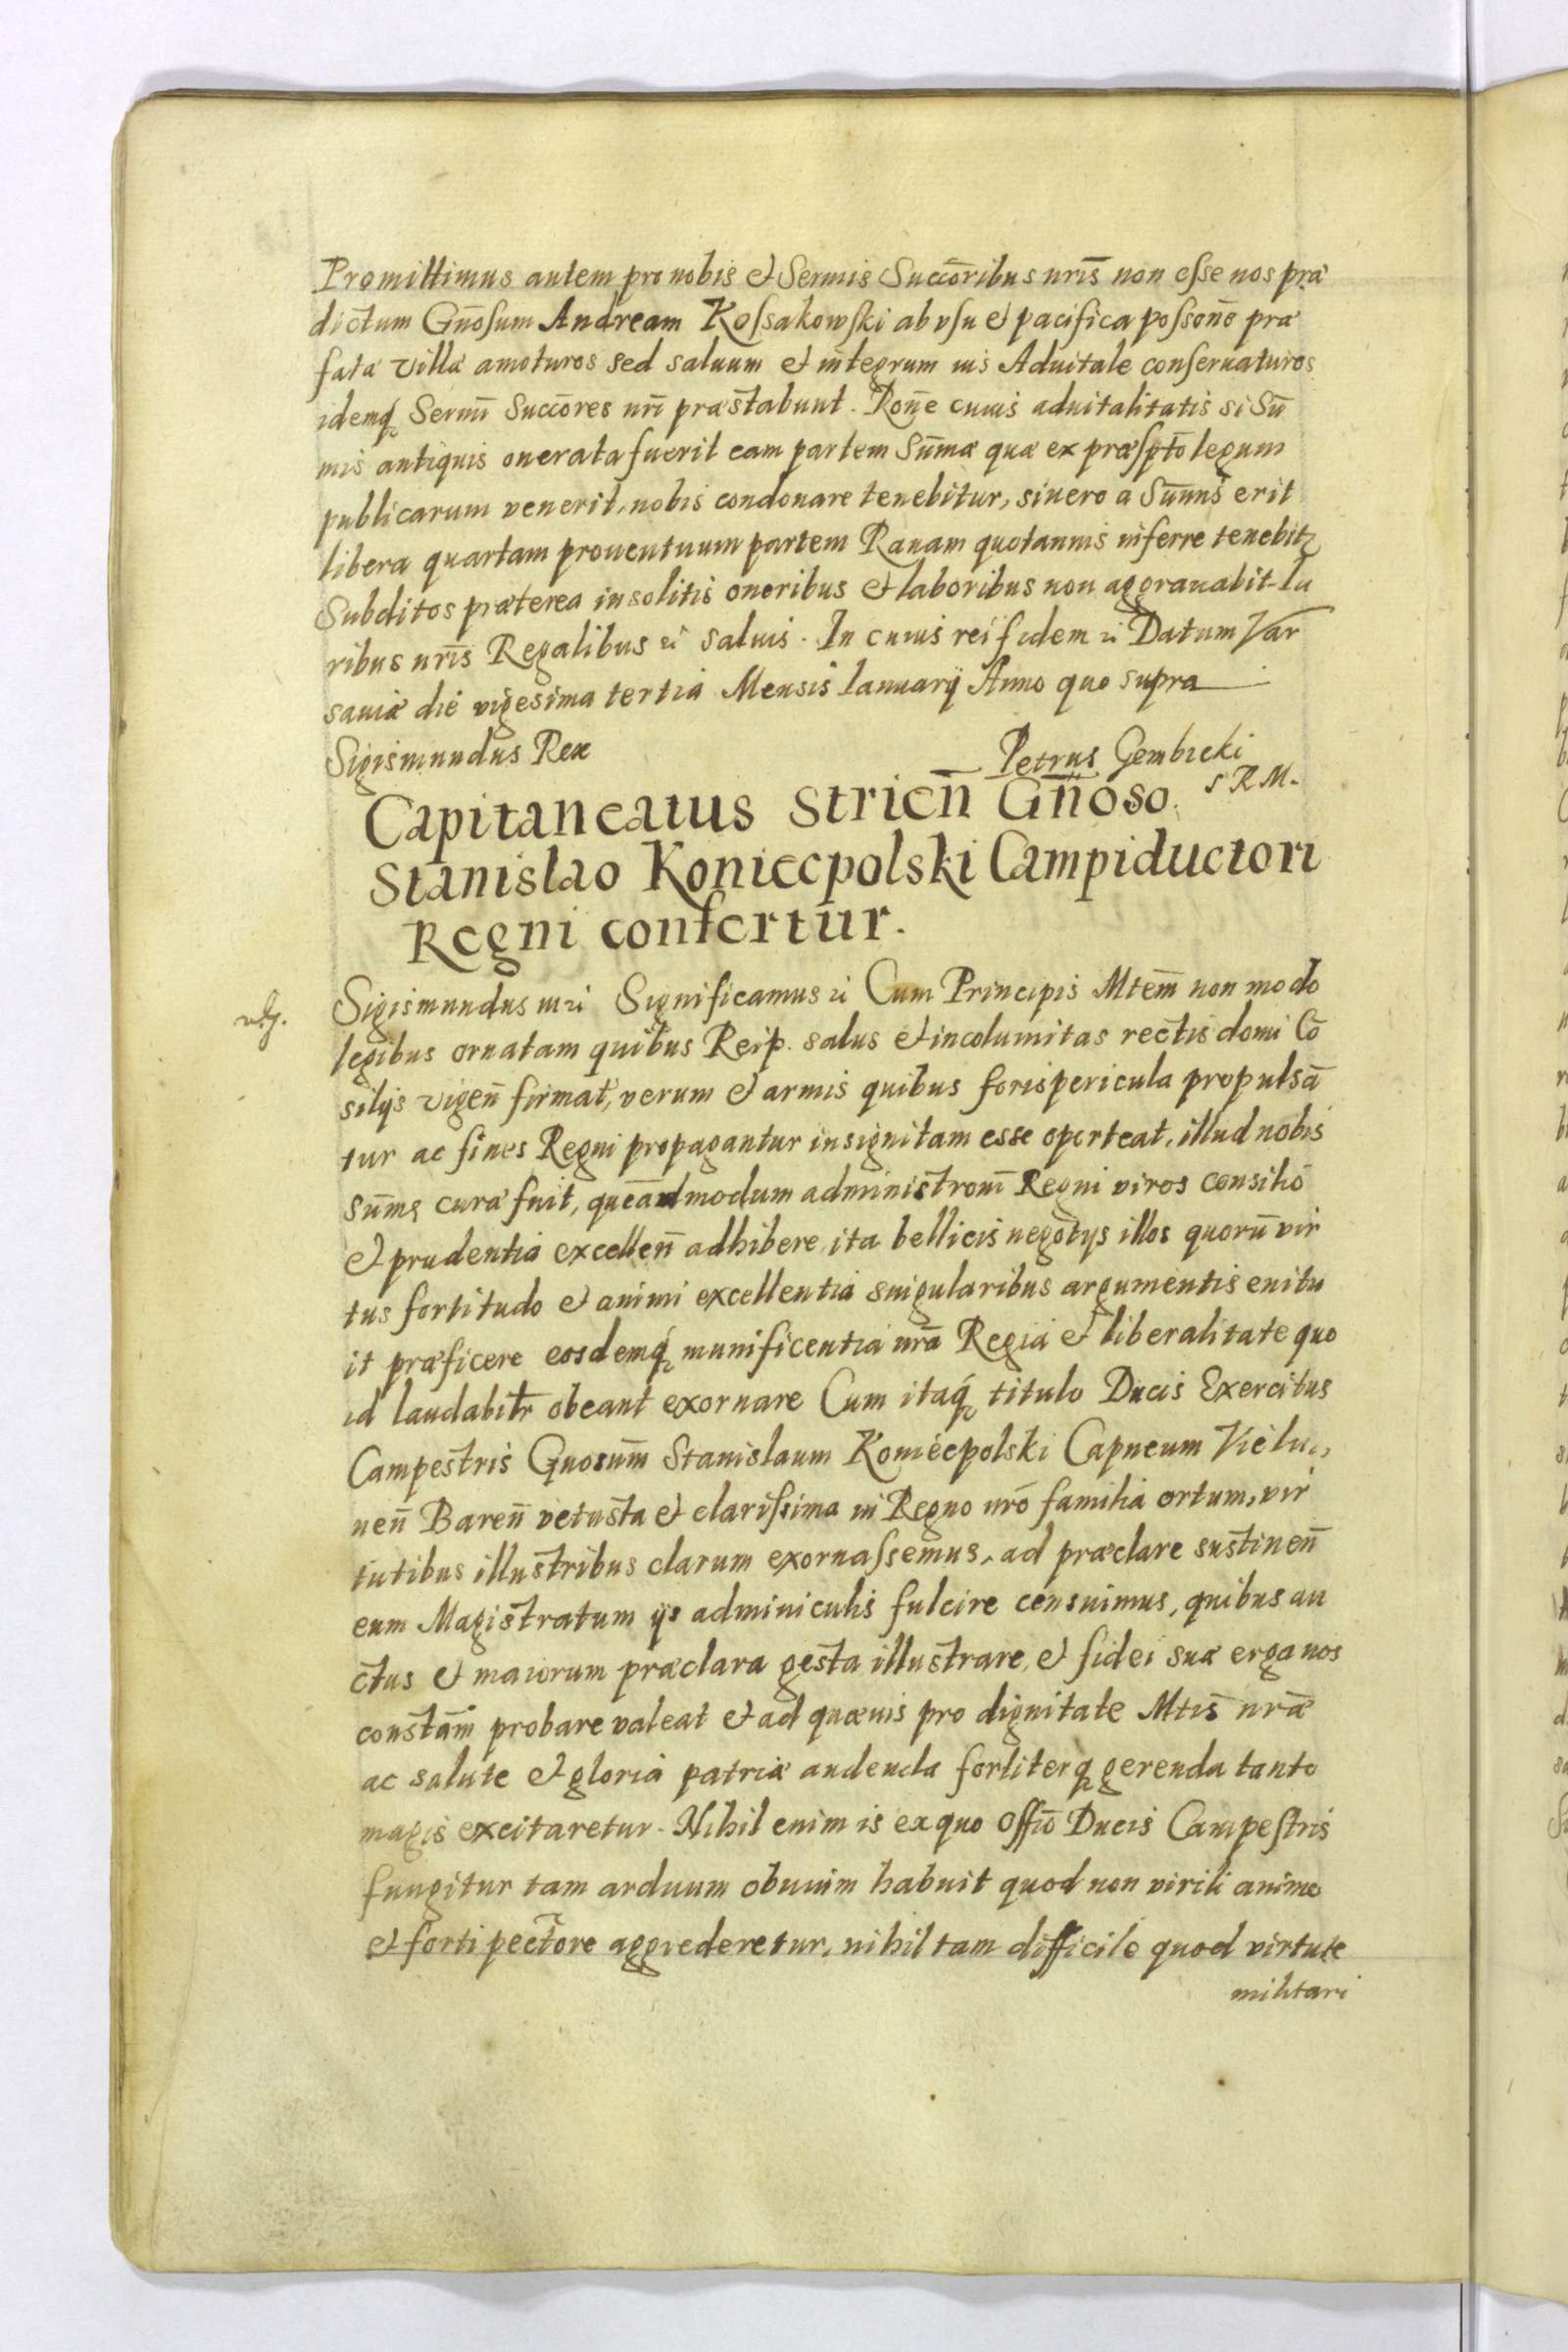 Promittimus autem pro nobis et Sermis Succōribus nrīs non esse nos præ
dictum Gn̄osum Andream Kossakowski ab vsu et pacifica possōne præ
fatæ villæ amoturos sed saluum et integrum ius Aduitale conseruaturos
idemq́ Sermī Succōres nrī præstabunt. Ron̄e cuius aduitalitatis si Sūm
mis antiquis onerata fuerit eam partem Sum̄æ quæ ex præsp̄to legum
publicarum venerit, nobis condonare tenebitur, si uero a Sum̄is erit
libera quartam prouentuum partem Rauam quotannis inferre tenebitʒ
Subditos præterea insolitis oneribus et laboribus non aggrauabit. Iu
ribus nrīs Regalibus ꝛc saluis. In cuius rei fidem ꝛc Datum Var
sauiæ die vigesima tertia Mensis Ianuarÿ Anno quo supra
Sigismundus Rex
Petrus Gembicki
S R M.
Capitaneatus Stricn̄ Gn̄oso
Stanislao Koniecpolski Campiductori
Regni confertur.
Sigismundus ꝛc Significamus ꝛc Cum Principis Mtem̄ non modo
legibus ornatam quibus Reip. salus et incolumitas rectis domi Cō
silÿs vigen̄ firmat, verum et armis quibus foris pericula propulsā
tur ac fines Regni propagantur insignitam esse oporteat, illud nobis
sum̄ę curæ fuit, queādmodum administronī Regni viros consilio
et prudentia excellen̄ adhibere, ita bellicis negotÿs illos quorū vir
tus fortitudo et animi excellentia singularibus argumentis enitu
it præficere eosdemq́ munificentia nrā Regia et liberalitate quo
id laudabitr obeant exornare Cum itaq́ titulo Ducis Exercitus
Campestris Gnosum̄ Stanislaum Koniecpolski Capneum Vielu,
nen̄ Baren̄ vetusta et clarissima in Regno nrō familia ortum, vir
tutibus illustribus clarum exornassemus, ad præclare sustinen̄
eum Magistratum ÿs adminiculis fulcire censuimus, quibus au
ctus et maiorum præclara gesta illustrare, et fidei suæ erga nos
constām probare valeat et ad quæuis pro dignitate Mtis̄ nrǣ
ac salute et gloria patriæ audenda fortiterq́ gerenda tanto
magis excitaretur. Nihil enim is ex quo offīo Ducis Campestris
fungitur tam arduum obuium habuit quod non virili animo
et forti pectore aggrederetur, nihil tam difficile quod virtute
militari